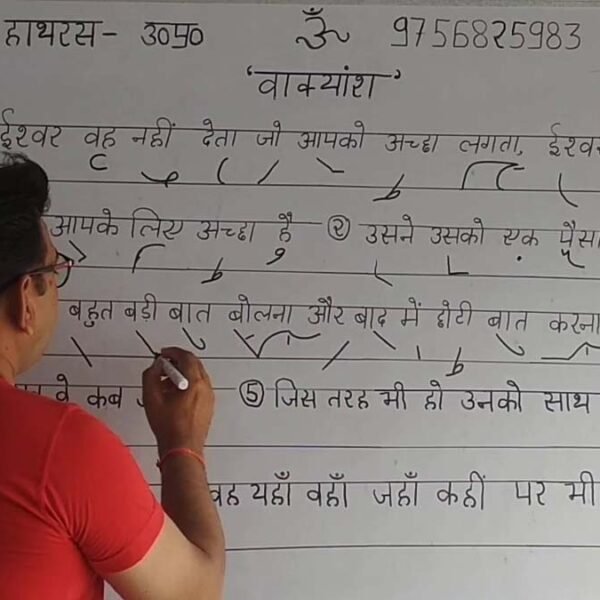 हाथरस- उ०प्र० ॐ 9756825983
'वाक्यांश'
ईश्वर वह नहीं देता जो आपको अच्छा लगता, ईश्वर
आपके लिए अच्छा है ② उसने उसको एक पैसा
बहुत बड़ी बात बोलना और बाद में छोटी बात करना
वे कब ⑤ जिस तरह भी हो उनको साथ
वह यहाँ वहाँ जहाँ कहीं पर भी